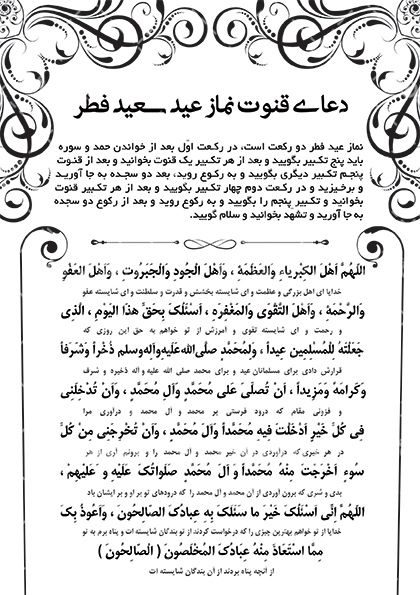 دعای قنوت نماز عید سعید فطر
نماز عید فطر دو رکعت است، در رکعت اوّل بعد از خواندن حمد و سوره
باید پنج تکبیر بگویید و بعد از هر تکبیر یک قنوت بخوانید و بعد از قنوت
پنجم تکبیر دیگری بگویید و به رکوع روید، بعد دو سجده به جا آورید
و برخیزید و در رکعت دوم چهار تکبیر بگویید و بعد از هر تکبیر قنوت
بخوانید و تکبیر پنجم را بگویید و به رکوع روید و بعد از رکوع دو سجده
به جا آورید و تشهد بخوانید و سلام گویید.
اَللّهُمَّ اَهْلَ الْكِبْرِياءِ وَالْعَظَمَةِ ، وَاَهْلَ الْجُودِ وَالْجَبَرُوتِ ، وَاَهْلَ الْعَفْوِ
خدایا ای اهل بزرگی و عظمت و ای شایسته بخشش و قدرت و سلطنت و ای شایسته عفو
وَالرَّحْمَةِ ، وَاَهْلَ التَّقْوى وَالْمَغْفِرَةِ ، اَسْئَلُكَ بِحَقِّ هذَا الْيَوْمِ ، الَّذى
و رحمت و ای شایسته تقوی و آمرزش از تو خواهم به حق این روزی که
جَعَلْتَهُ لِلْمُسْلِمينَ عيداً ، وَلِمُحَمَّدٍ صلى‌الله‌عليه‌وآله‌وسلم ذُخْراً وَشَرَفاً
قرارش دادی برای مسلمانان عید و برای محمد صلی الله علیه و آله ذخیره و شرف
وَكَرامَةً وَمَزيداً ، اَنْ تُصَلِّىَ عَلى مُحَمَّدٍ وَآلِ مُحَمَّدٍ ، وَاَنْ تُدْخِلَنى
و فزونی مقام که درود فرستی بر محمد و آل محمد و درآوری مرا
فى كُلِّ خَيْرٍ اَدْخَلْتَ فيهِ مُحَمَّداً وَآلَ مُحَمَّدٍ ، وَاَنْ تُخْرِجَنى مِنْ كُلِّ
در هر خیری که درآوردی در آن خیر محمد و آل محمد را و برونم آری از هر
سُوءٍ اَخْرَجْتَ مِنْهُ مُحَمَّداً وَ آلَ مُحَمَّدٍ صَلَواتُكَ عَلَيْهِ وَ عَلَيْهِمْ ،
بدی و شری که برون آوردی از آن محمد و آل محمد را که درودهای تو بر او و بر ایشان باد
اَللّهُمَّ اِنّى اَسْئَلُكَ خَيْرَ ما سَئَلَكَ بِهِ عِبادُكَ الصّالِحُونَ ، وَاَعُوذُ بِكَ
خدایا از تو خواهم بهترین چیزی را که درخواست کردند از تو بندگان شایسته ات و پناه برم به تو
مِمَّا اسْتَعاذَ مِنْهُ عِبادُكَ الْمُخْلَصُونَ ( الصّالِحُونَ )
از آنچه پناه بردند از آن بندگان شایسته ات